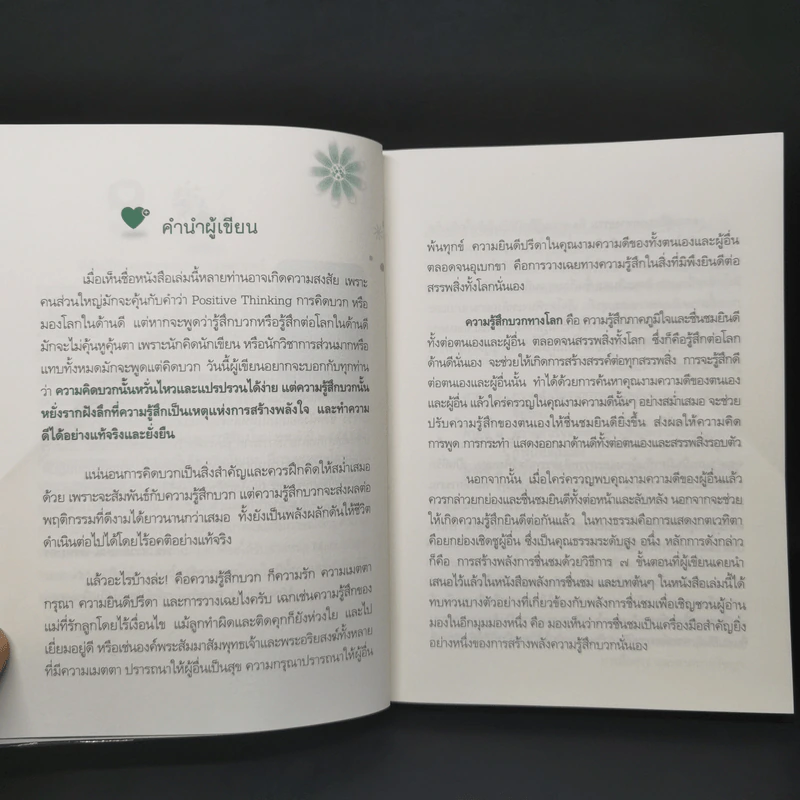 คำนำผู้เขียน
เมื่อเห็นชื่อหนังสือเล่มนี้หลายท่านอาจเกิดความสงสัย เพราะ
คนส่วนใหญ่มักจะคุ้นกับคำว่า Positive Thinking การคิดบวก หรือ
มองโลกในด้านดี แต่หากจะพูดว่ารู้สึกบวกหรือรู้สึกต่อโลกในด้านดี
มักจะไม่คุ้นหูคุ้นตา เพราะนักคิดนักเขียน หรือนักวิชาการส่วนมากหรือ
แทบทั้งหมดมักจะพูดแต่คิดบวก วันนี้ผู้เขียนอยากจะบอกกับทุกท่าน
ว่า ความคิดบวกนั้นหวั่นไหวและแปรปรวนได้ง่าย แต่ความรู้สึกบวกนั้น
หยั่งรากฝังลึกที่ความรู้สึกเป็นเหตุแห่งการสร้างพลังใจ และทำความ
ดีได้อย่างแท้จริงและยั่งยืน
แน่นอนการคิดบวกเป็นสิ่งสำคัญและควรฝึกคิดให้สม่ำเสมอ
ด้วย เพราะจะสัมพันธ์กับความรู้สึกบวก แต่ความรู้สึกบวกจะส่งผลต่อ
พฤติกรรมที่ดีงามได้ยาวนานกว่าเสมอ ทั้งยังเป็นพลังผลักดันให้ชีวิต
ดำเนินต่อไปได้โดยไร้อคติอย่างแท้จริง
แล้วอะไรบ้างล่ะ! คือความรู้สึกบวก ก็ความรัก ความเมตตา
กรุณา ความยินดีปรีดา และการวางเฉยไงครับ เฉกเช่นความรู้สึกของ
แม่ที่รักลูกโดยไร้เงื่อนไข แม้ลูกทำผิดและติดคุกก็ยังห่วงใย และไป
เยี่ยมอยู่ดี หรือเช่นองค์พระสัมมาสัมพุทธเจ้าและพระอริยสงฆ์ทั้งหลาย
ที่มีความเมตตา ปรารถนาให้ผู้อื่นเป็นสุข ความกรุณาปรารถนาให้ผู้อื่น
พ้นทุกข์ ความยินดีปรีดาในคุณงามความดีของทั้งตนเองและผู้อื่น
ตลอดจนอุเบกขา คือการวางเฉยทางความรู้สึกในสิ่งที่มีพึงยินดีต่อ
สรรพสิ่งทั้งโลกนั่นเอง
ความรู้สึกบวกทางโลก คือ ความรู้สึกภาคภูมิใจและชื่นชมยินดี
ทั้งต่อตนเองและผู้อื่น ตลอดจนสรรพสิ่งทั้งโลก ซึ่งก็คือรู้สึกต่อโลก
ด้านดีนั่นเอง จะช่วยให้เกิดการสร้างสรรค์ต่อทุกสรรพสิ่ง การจะรู้สึกดี
ต่อตนเองและผู้อื่นนั้น ทำได้ด้วยการค้นหาคุณงามความดีของตนเอง
และผู้อื่น แล้วใคร่ครวญในคุณงามความดีนั้นๆ อย่างสม่ำเสมอ จะช่วย
ปรับความรู้สึกของตนเองให้ชื่นชมยินดียิ่งขึ้น ส่งผลให้ความคิด
การพูด การกระทำ แสดงออกมาด้านดีทั้งต่อตนเองและสรรพสิ่งรอบตัว
นอกจากนั้น เมื่อใคร่ครวญพบคุณงามความดีของผู้อื่นแล้ว
ควรกล่าวยกย่องและชื่นชมยินดีทั้งต่อหน้าและลับหลัง นอกจากจะช่วย
ให้เกิดความรู้สึกยินดีต่อกันแล้ว ในทางธรรมคือการแสดงกตเวทิตา
คือยกย่องเชิดชูผู้อื่น ซึ่งเป็นคุณธรรมระดับสูง อนึ่ง หลักการดังกล่าว
ก็คือ การสร้างพลังการชื่นชมด้วยวิธีการ ๗ ขั้นตอนที่ผู้เขียนเคยนำ
เสนอไว้แล้วในหนังสือพลังการชื่นชม และบทต้นๆ ในหนังสือเล่มนี้ได้
ทบทวนบางตัวอย่างที่เกี่ยวข้องกับพลังการชื่นชมเพื่อเชิญชวนผู้อ่าน
มองในอีกมุมมองหนึ่ง คือ มองเห็นว่าการชื่นชมเป็นเครื่องมือสำคัญยิ่ง
อย่างหนึ่งของการสร้างพลังความรู้สึกบวกนั่นเอง